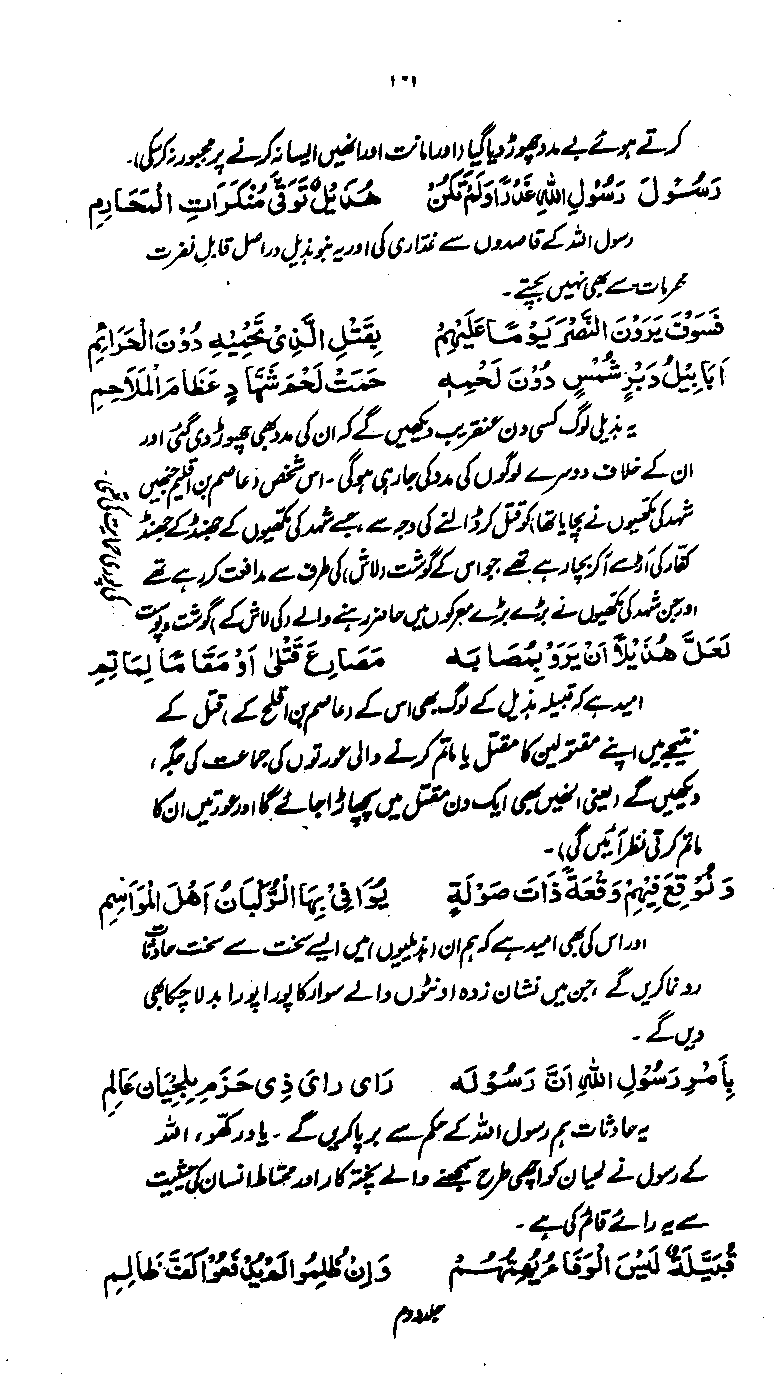 ۱۰۱
کرتے ہوئے بے مدد چھوڑ دیا گیا (اور امانت اور انھیں ایسا نہ کرنے پر مجبور نہ کر سکی)۔
رَسُوْلَ رَسُوْلِ اللهِ غَدْرًا وَلَمْ تَكُنْ هُذَيْلٌ تَوَقّٰى مُنْكَرَاتِ الْمَحَارِمِ
رسول اللہ کے قاصدوں سے غداری کی اور یہ بنو ہذیل دراصل قابلِ نفرت
محرمات سے بھی نہیں بچتے۔
فَسَوْفَ يَرَوْنَ النَّصْرَ يَوْمًا عَلَيْهِمُ بِقَتْلِ الَّذِىْ تَحْمِيْهِ دُوْنَ الْحَرَائِمِ
اَبَابِيْلُ دَبْرٍ شُمَّسٍ دُوْنَ لَحْمِهٖ حَمَتْ لَحْمَ شَهَّادٍ عِظَامَ الْمَلَاحِمِ
یہ ہذیل لوگ کسی دن عنقریب دیکھیں گے کہ ان کی مدد بھی چھوڑ دی گئی اور
ان کے خلاف دوسرے لوگوں کی مدد کی جا رہی ہوگی۔ اس شخص (عاصم بن اقلح جنھیں
شہد کی مکھیوں نے بچایا تھا) کو قتل کر ڈالنے کی وجہ سے، جسے شہد کی مکھیوں کے جھنڈ کے جھنڈ
کفار کی آڑ سے آکر بچا رہے تھے جو اس کے گوشت (لاش) کی طرف سے مدافعت کر رہے تھے
اور جن شہد کی مکھیوں نے بڑے بڑے معرکوں میں حاضر رہنے والے (کی لاش کے) گوشت و پوست
کی پوری حمایت کی تھی۔
لَعَلَّ هُذَيْلًا اَنْ يَرَوْ بِمُصَابِهٖ مَصَارِعَ قَتْلٰى اَوْ مَقَامًا لِمَاتَمِ
امید ہے کہ قبیلہ ہذیل کے لوگ بھی اس کے (عاصم بن اقلح کے) قتل کے
نتیجے میں اپنے مقتولین کا مقتل یا ماتم کرنے والی عورتوں کی جماعت کی جگہ،
دیکھیں گے (یعنی انھیں بھی ایک دن مقتل میں پچھاڑا جائے گا اور عورتیں ان کا
ماتم کرتی نظر آئیں گی)۔
وَنُوْقِعَ فِيْهِمْ وَقْعَةً ذَاتَ صَوْلَةٍ يُوَافِىْ بِهَا الرُّكْبَانُ اَهْلَ الْمَوَاسِمِ
اور اس کی بھی امید ہے کہ ہم ان (ہذیلیوں) میں ایسے سخت سے سخت حادثات
رونما کریں گے، جن میں نشان زدہ اونٹوں والے سوار کا پورا پورا بدلا چکا بھی
دیں گے۔
بِاَمْرِ رَسُوْلِ اللهِ اَنَّ رَسُوْلَهٗ رَاى رَاىَ ذِىْ حَزْمٍ بِلِحْيَانَ عَالِمِ
یہ حادثات ہم رسول اللہ کے حکم سے برپا کریں گے۔ یاد رکھو، اللہ
کے رسول نے لحیان کو اچھی طرح سمجھنے والے پختہ کار اور محتاط انسان کی حیثیت
سے یہ رائے قائم کی ہے۔
قُبَيِّلَةٌ لَيْسَ الْوَفَاءُ يُهِمُّهُمْ وَاِنْ ظُلِمُوْا لَمْ يَدْفَعُوْا كَفَّ ظَالِمِ
جلد دوم